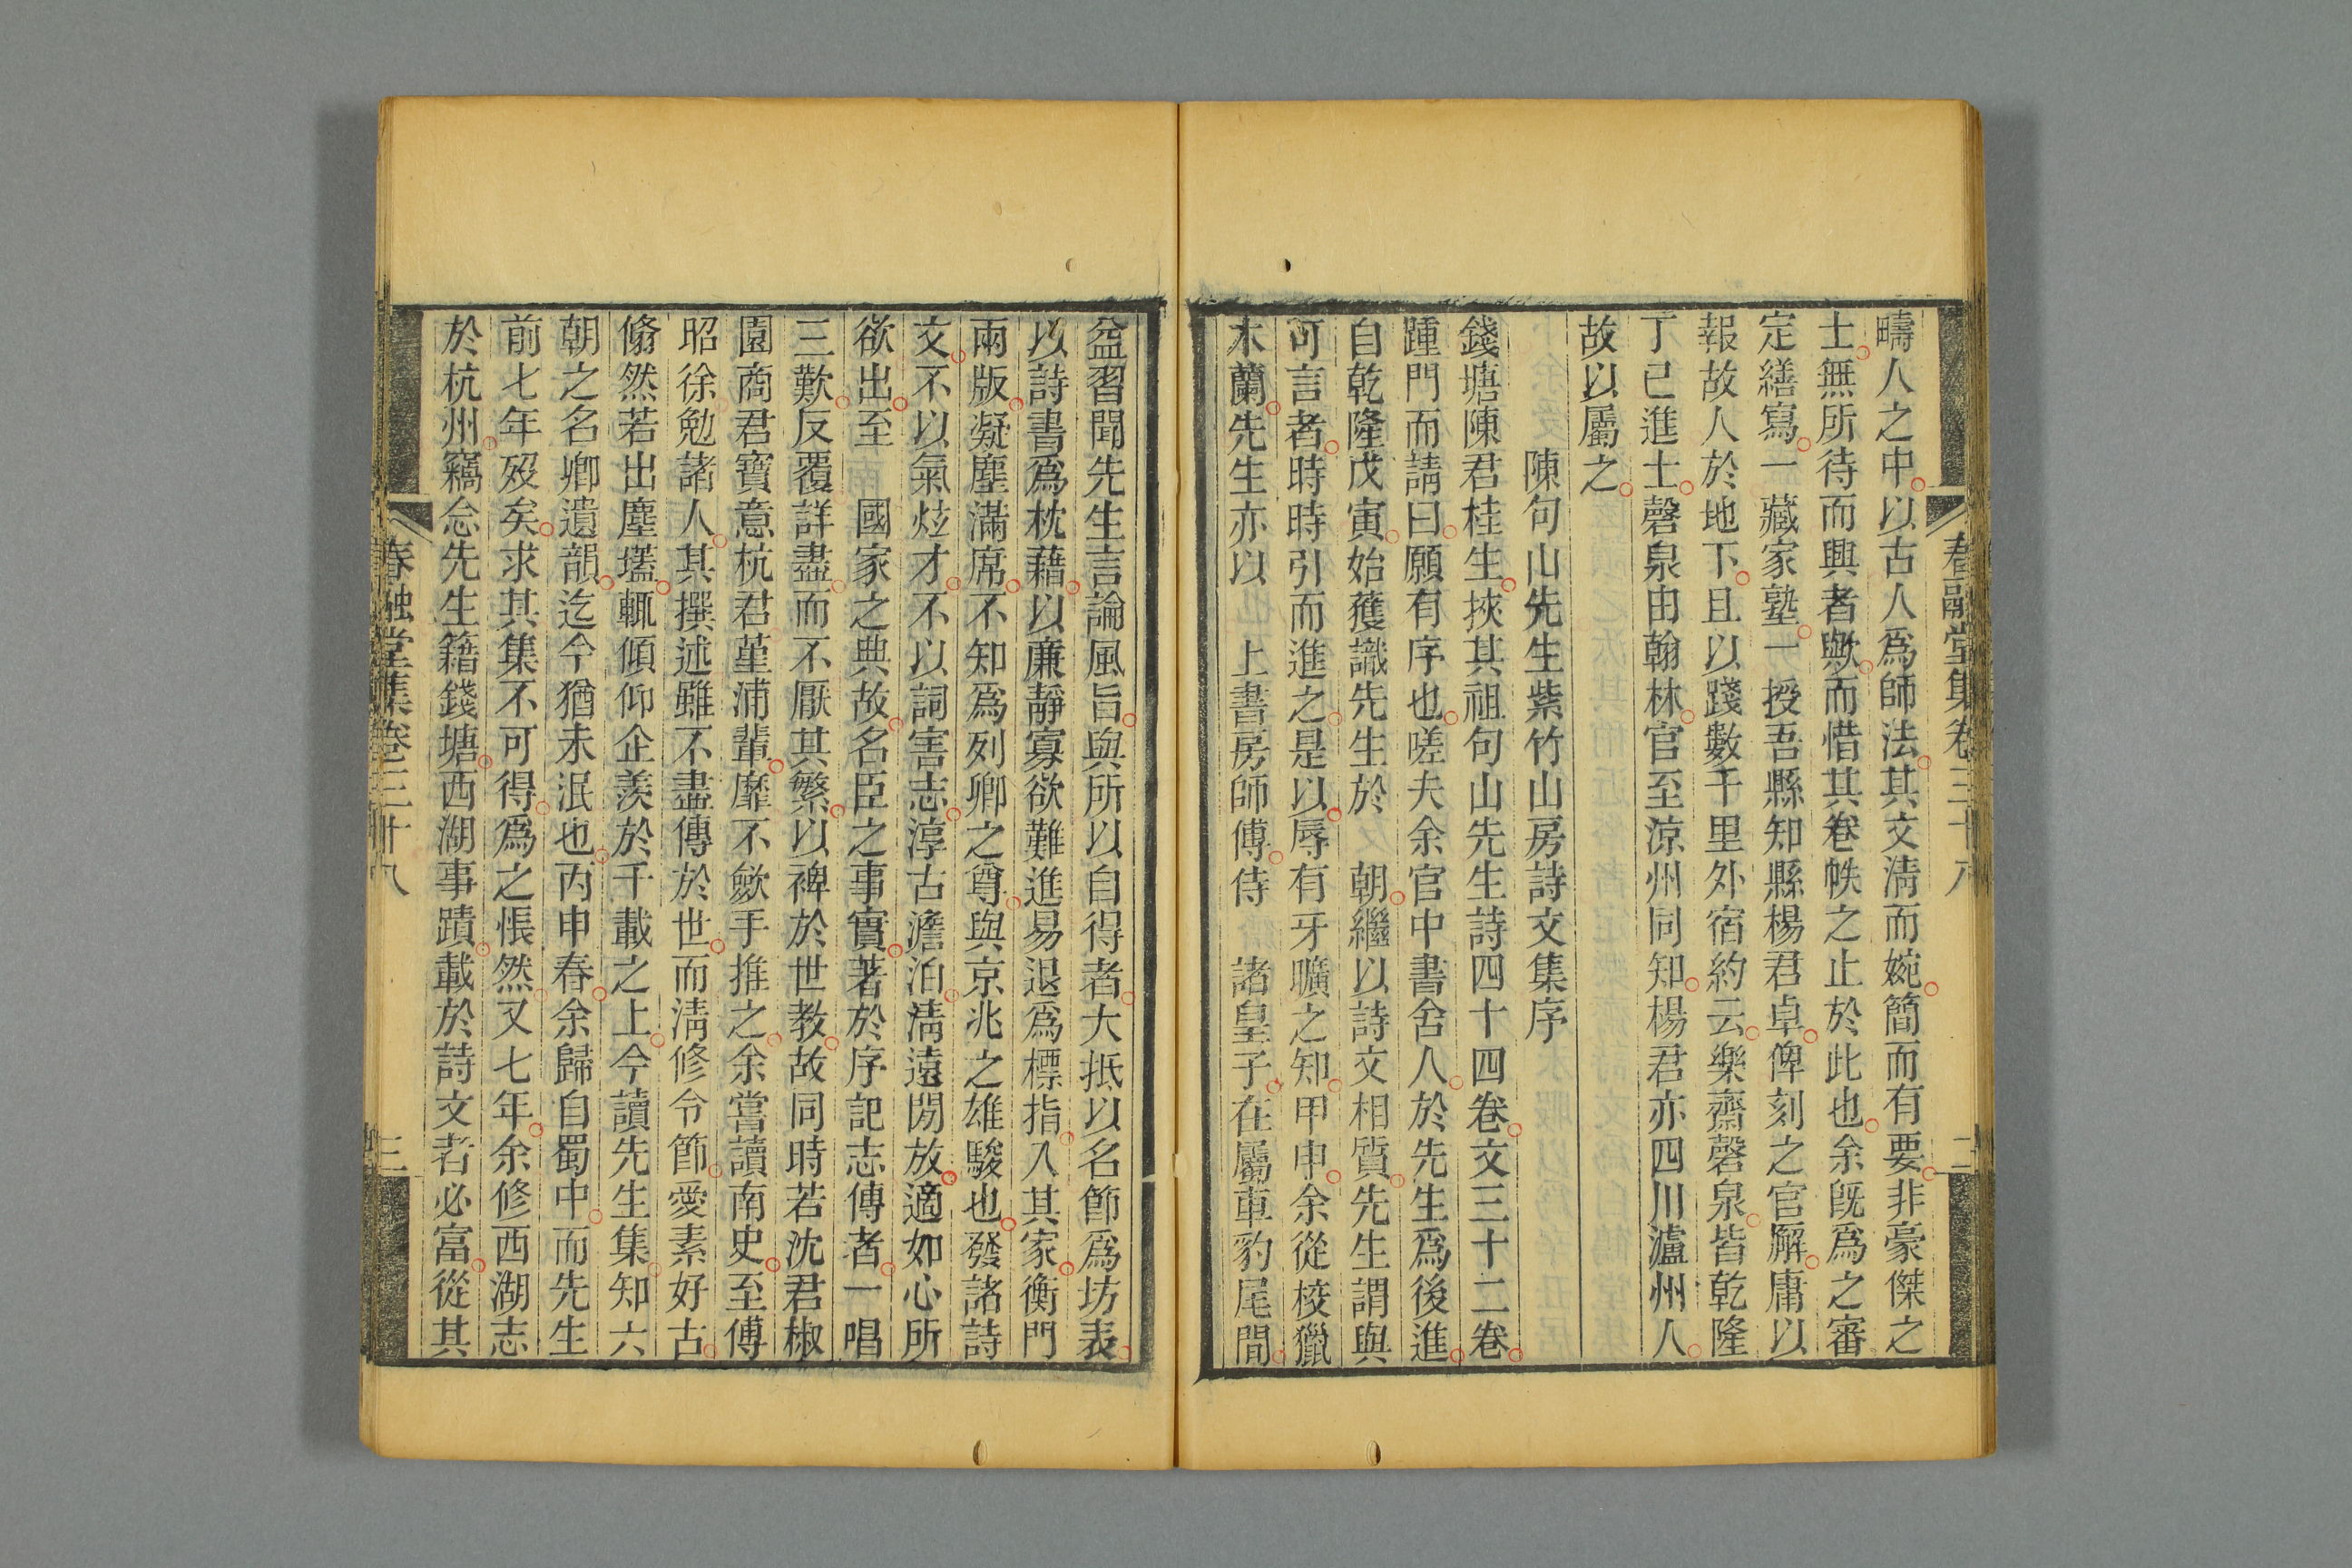 疇人之中以古人爲師法其文淸而婉簡而有要非豪傑之
士無所待而興者歟而惜其卷帙之止於此也余旣爲之審
定繕寫一藏家塾一授吾縣知縣楊君卓俾刻之官廨庸以
報故人於地下且以踐數千里外宿約云樂齋磬泉皆乾隆
丁巳進士磬泉由翰林官至涼州同知楊君亦四川瀘州人
故以屬之
陳句山先生紫竹山房詩文集序
錢塘陳君桂生挾其祖句山先生詩四十四卷文三十二卷
踵門而請曰願有序也嗟夫余官中書舍人於先生爲後進
自乾隆戊寅始獲識先生於 朝繼以詩文相質先生謂與
可言者時時引而進之是以辱有牙曠之知甲申余從校獵
木蘭先生亦以 上書房師傅侍 諸皇子在屬車豹尾間
春融堂集卷三十八 二
益習聞先生言論風旨與所以自得者大抵以名節爲坊表
以詩書爲枕藉以廉靜寡欲難進易退爲標指入其家衡門
兩版凝塵滿席不知爲列卿之尊與京兆之雄駿也發諸詩
文不以氣炫才不以詞害志淳古澹泊淸遠閒放適如心所
欲出至 國家之典故名臣之事實著於序記志傳者一唱
三歎反覆詳盡而不厭其繁以裨於世教故同時若沈君椒
園商君寶意杭君堇浦輩靡不歛手推之余嘗讀南史至傅
昭徐勉諸人其撰述雖不盡傳於世而淸修令節愛素好古
翛然若出塵壒輒傾仰企羨於千載之上今讀先生集知六
朝之名卿遺韻迄今猶未泯也丙申春余歸自蜀中而先生
前七年歿矣求其集不可得爲之悵然又七年余修西湖志
於杭州竊念先生籍錢塘西湖事蹟載於詩文者必富從其
春融堂集卷三十八 三